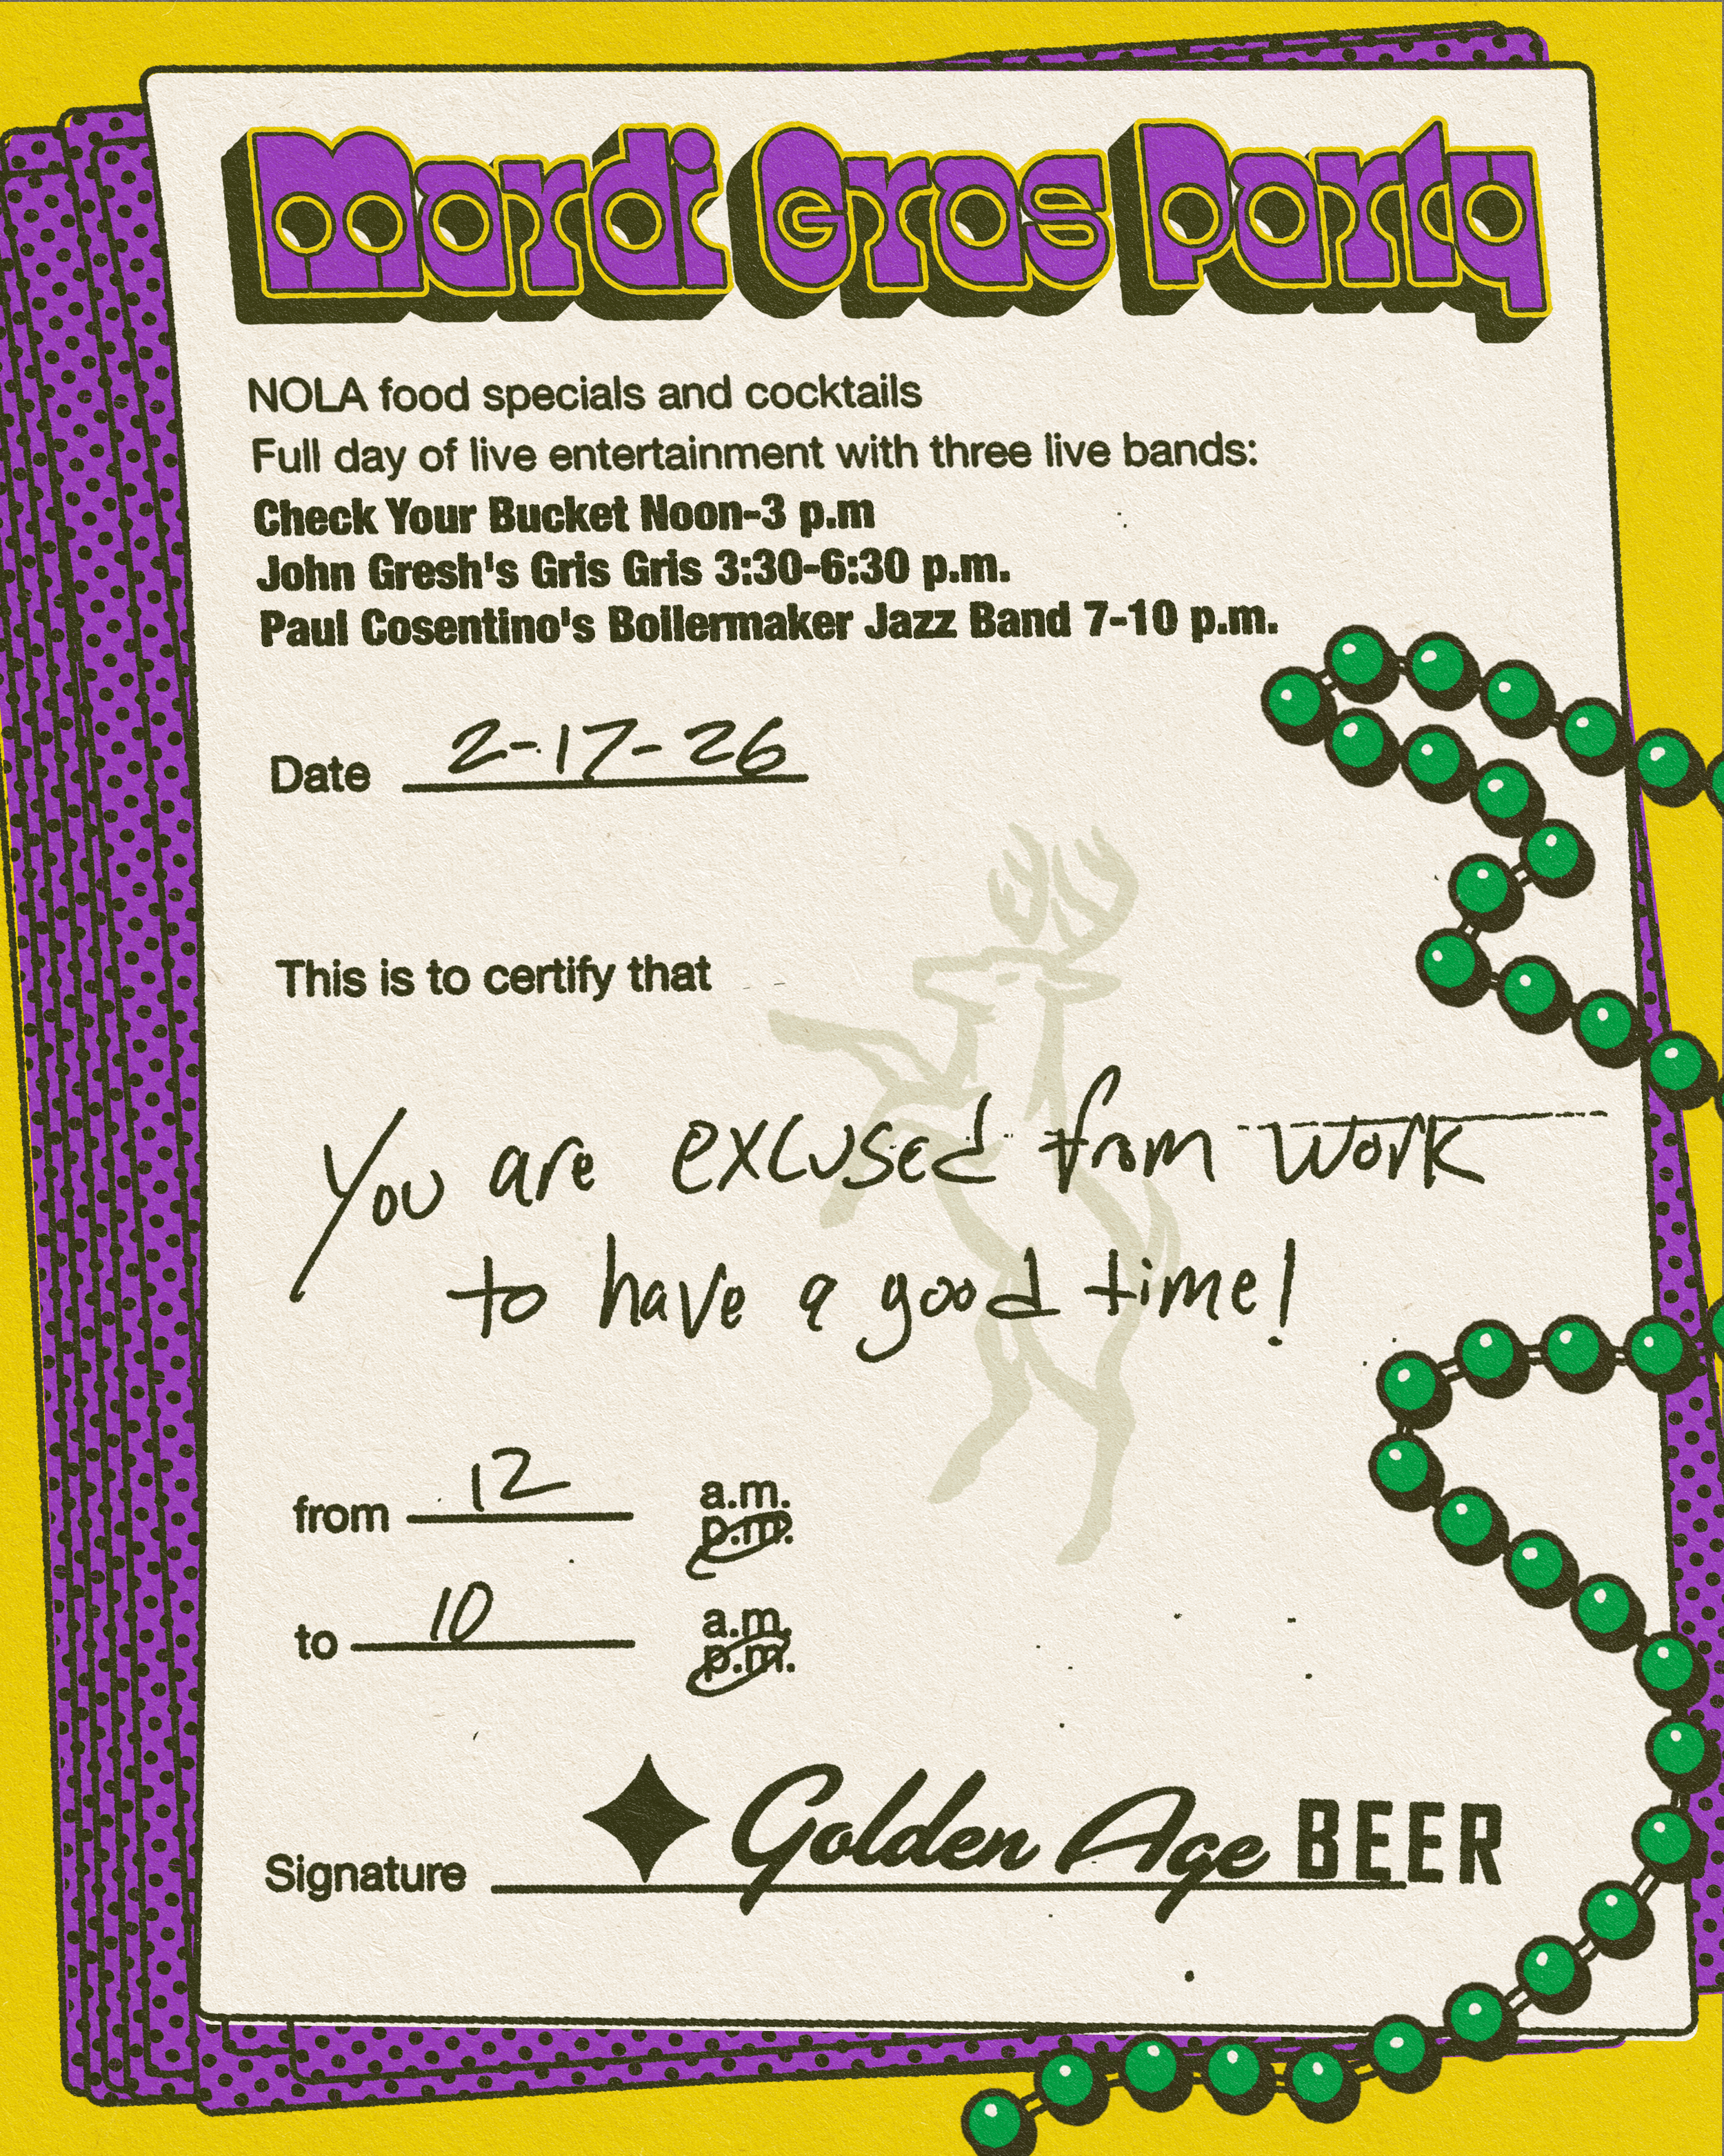 Mardi Gras Party
NOLA food specials and cocktails
Full day of live entertainment with three live bands:
Check Your Bucket Noon-3 p.m
John Gresh's Gris Gris 3:30-6:30 p.m.
Paul Cosentino's Boilermaker Jazz Band 7-10 p.m.
Date 2-17-26
This is to certify that
You are excused from work
to have a good time!
from 12 a.m.
p.m.
to 10 a.m.
p.m.
Signature Golden Age BEER